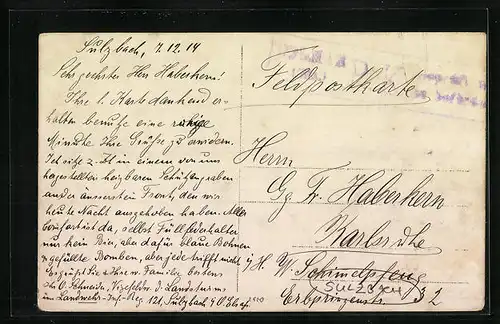 Sulzbach, 7.12.14
Sehr geehrter Herr Haberkern!
Ihre l. Karte dankend er-
halten benutze eine ruhige
Minute Ihre Grüsse zu erwidern.
Ich sitze z. Zt. in einem von uns
hergestellten heizbaren Schützengraben
an der äussersten Front, den wir
heute Nacht ausgehoben haben. Alles
comfortist da, selbst Füllfederhalter
nur kein Bier, aber dafür blaue Bohnen
u. gefüllte Bomben, aber jede trifft nicht.
Es grüßt Sie u. Ihre w. Familie bestens
O. Schneider, Vizefeldw. d. Landsturms
im Landwehr-Inf.-Reg. 121, Sulzbach i/O Elsaß
Feldpostkarte
Herrn
Fr. Haberkern
Karlsruhe
i/H. W. Schimelpfeng
Erbprinzenstr. 32
SULZBACH